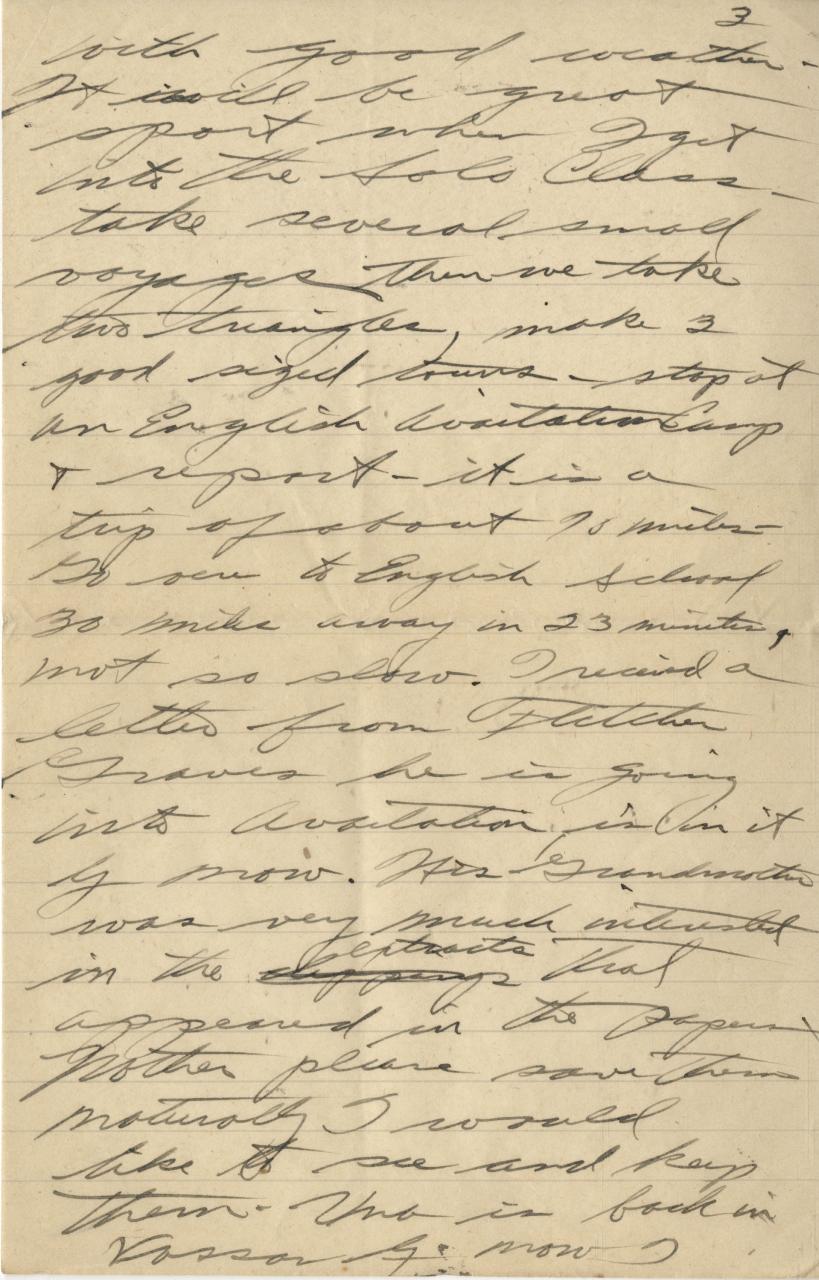 3
with good weather -
It will be great
sport when I get
into the Solo Class -
take several small
voyages then we take
two triangles, make 3
good sized tours - stop at
an English Aviatation Camp
& report - it is a
trip of about 75 miles -
Go over to English School
30 miles away in 23 minutes,
not so slow. I received a
letter from Fletcher
Graves he is going
into Avaitation, is in it
by now. His Grandmother
was very much interested
extracts
in the clippings that
appeared in the papers
Mother please save them
naturally I would
like to see and keep
them - Una is back in
Vassar by now I